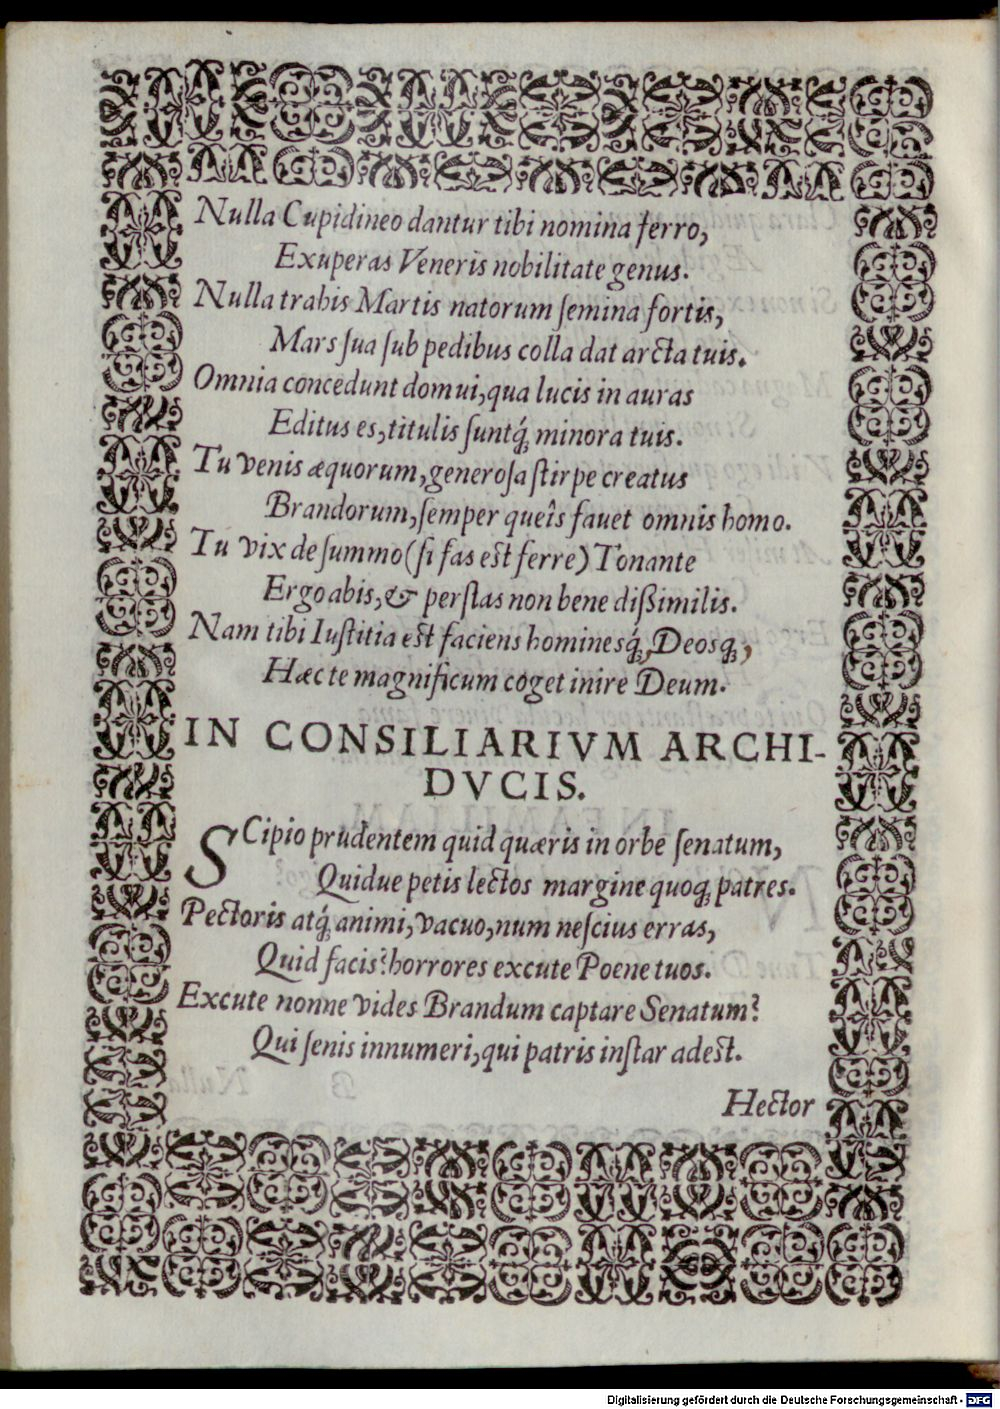 Nulla Cupidineo dantur tibi nomina ferro,
Exuperas Veneris nobilitate genus.
Nulla trahis Martis natorum ſemina fortis,
Mars ſua ſub pedibus colla dat arcta tuis.
Omnia concedunt domui, qua lucis in auras
Editus es, titulis ſuntq́; minora tuis.
Tu venis æquorum, generoſa ſtirpe creatus
Brandorum, ſemper queîs fauet omnis homo.
Tu vix de ſummo (ſi fas eſt ferre) Tonante
Ergo abis, & perſtas non bene dißimilis.
Nam tibi Iuſtitia eſt faciens hominesq́;, Deosq́;,
Hæc te magnificum coget inire Deum.
IN CONSILIARIVM ARCHI-
DVCIS.
SCipio prudentem quid quæris in orbe ſenatum,
Quidue petis lectos margine quoq; patres.
Pectoris atq́; animi, vacuo, num neſcius erras,
Quid facis? horrores excute Poene tuos.
Excute nonne vides Brandum captare Senatum?
Qui ſenis innumeri, qui patris inſtar adeſt.
Hector
Digitalisierung gefördert durch die Deutsche Forschungsgemeinschaft - DFG